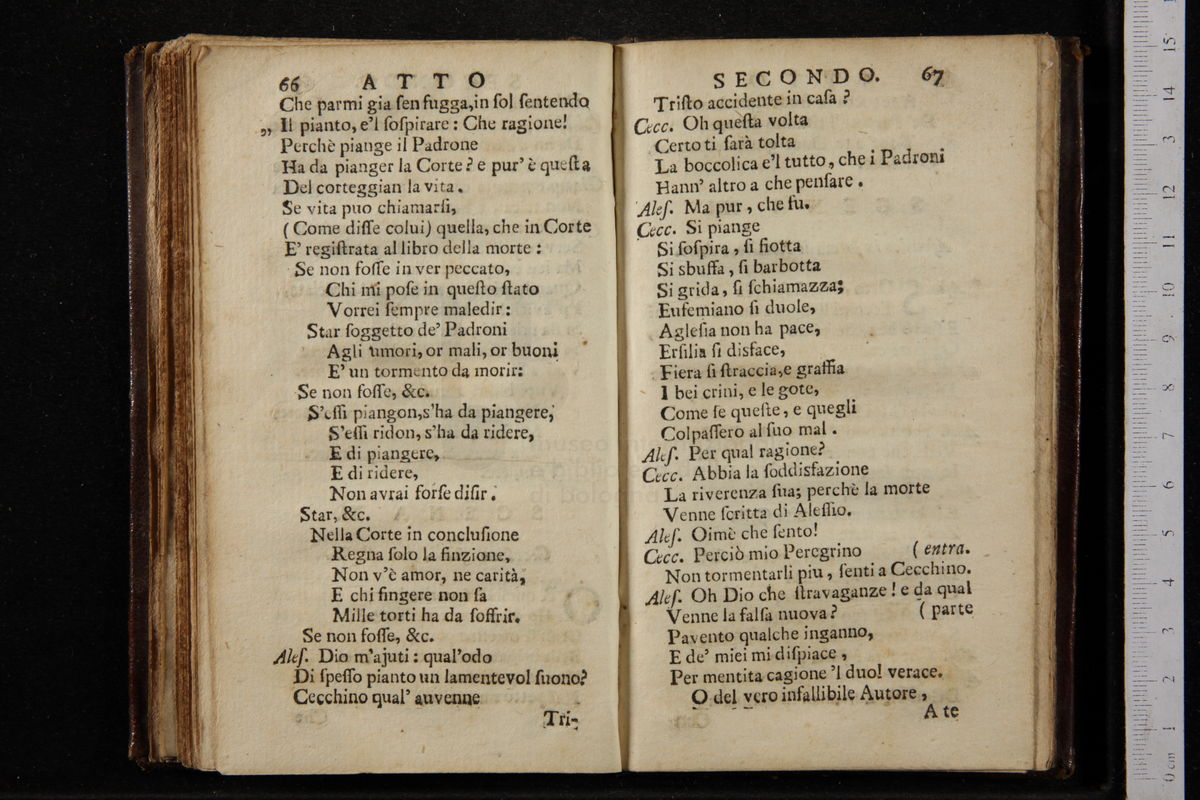 66 ATTO
Che parmi gia ſen fugga,in ſol ſentendo
„ Il pianto, e'l ſoſpirare : Che ragione!
Perchè piange il Padrone
Ha da pianger la Corte? e pur' è queſta
Del corteggian la vita.
Se vita puo chiamarſi,
(Come diſſe colui) quella, che in Corte
E' regiſtrata al libro della morte :
Se non foſſe in ver peccato,
Chi mi poſe in queſto ſtato
Vorrei ſempre maledir:
Star ſoggetto de' Padroni
Agli umori, or mali, or buoni
E' un tormento da morir:
Se non foſſe, &c.
S'eſſi piangon,s'ha da piangere,
S'eſſi ridon, s'ha da ridere,
E di piangere,
E di ridere,
Non avrai forſe diſir.
Star, &c.
Nella Corte in concluſione
Regna ſolo la finzione,
Non v'è amor, ne carità,
E chi fingere non ſa
Mille torti ha da ſoffrir.
Se non foſſe, &c.
Aleſ. Dio m'ajuti : qual'odo
Di ſpeſſo pianto un lamentevol ſuono?
Cecchino qual' auvenne
Tri-
SECONDO. 67
Triſto accidente in caſa ?
Cecc. Oh queſta volta
Certo ti ſarà tolta
La boccolica e'l tutto, che i Padroni
Hann' altro a che penſare.
Aleſ. Ma pur, che fu.
Cecc. Si piange
Si ſoſpira, ſi fiotta
Si sbuffa, ſi barbotta
Si grida, ſi ſchiamazza;
Eufemiano ſi duole,
Agleſia non ha pace,
Erſilia ſi disface,
Fiera ſi ſtraccia,e graffia
I bei crini, e le gote,
Come ſe queſte, e quegli
Colpaſſero al ſuo mal.
Aleſ. Per qual ragione?
Cecc. Abbia la ſoddisfazione
La riverenza ſua; perchè la morte
Venne ſcritta di Aleſſio.
Aleſ. Oimè che ſento!
Cecc. Perciò mio Peregrino ( entra.
Non tormentarli piu, ſenti a Cecchino.
Aleſ. Oh Dio che ſtravaganze ! e da qual
Venne la falſa nuova? ( parte
Pavento qualche inganno,
E de' miei mi diſpiace,
Per mentita cagione 'l duol verace.
O del vero infallibile Autore,
A te